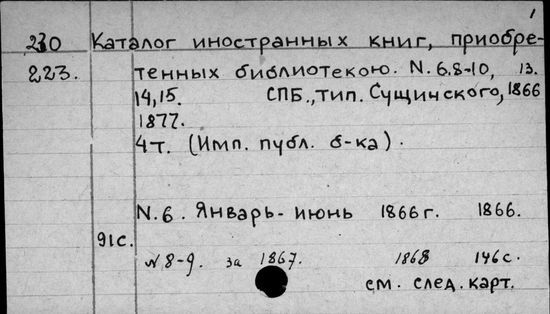 1
230 Каталог иностранных книг, приобре-
223. тенных библиотекою. N. 6.8-10, 13.
14,15. СПБ., тип. Сущинского, 1866
1877.
4т. (Имп. публ. б-ка).
N. 6. Январь- июнь 1866 г. 1866.
91с.
N 8-9. за 1867. 1868 146 с.
см. след. карт.